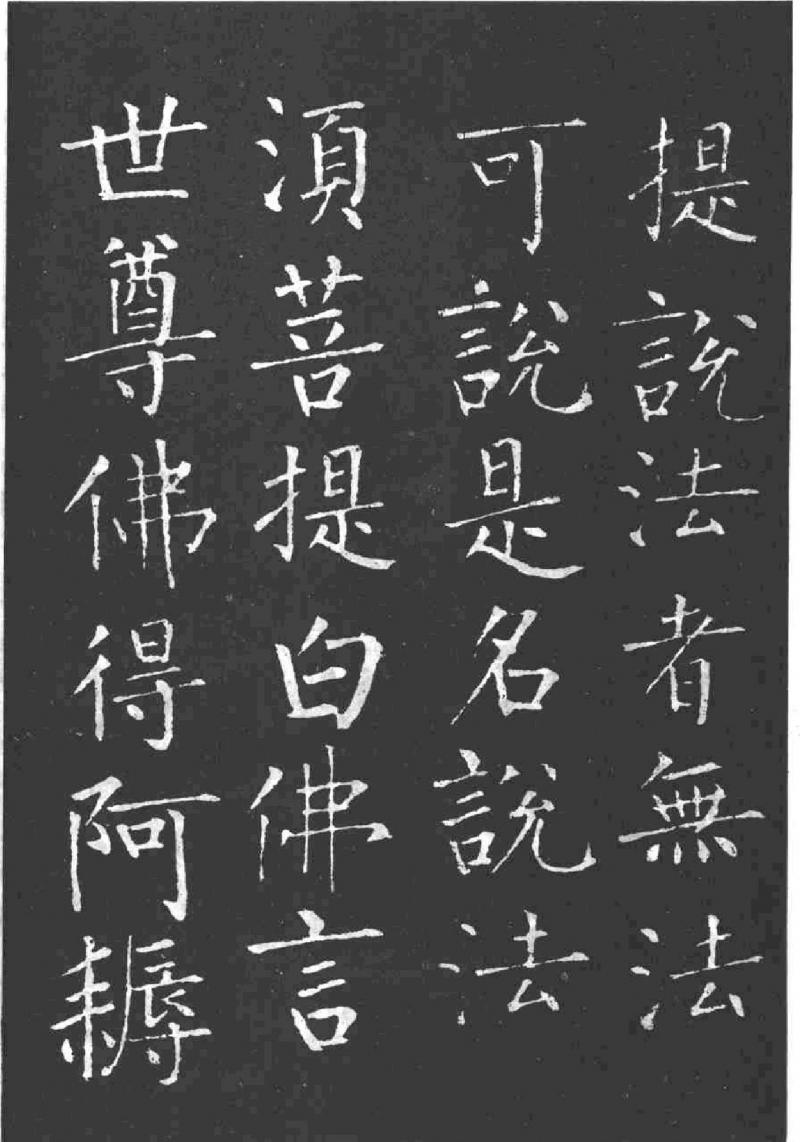 提說法者無法
可說是名說法
須菩提白佛言
世尊佛得阿耨